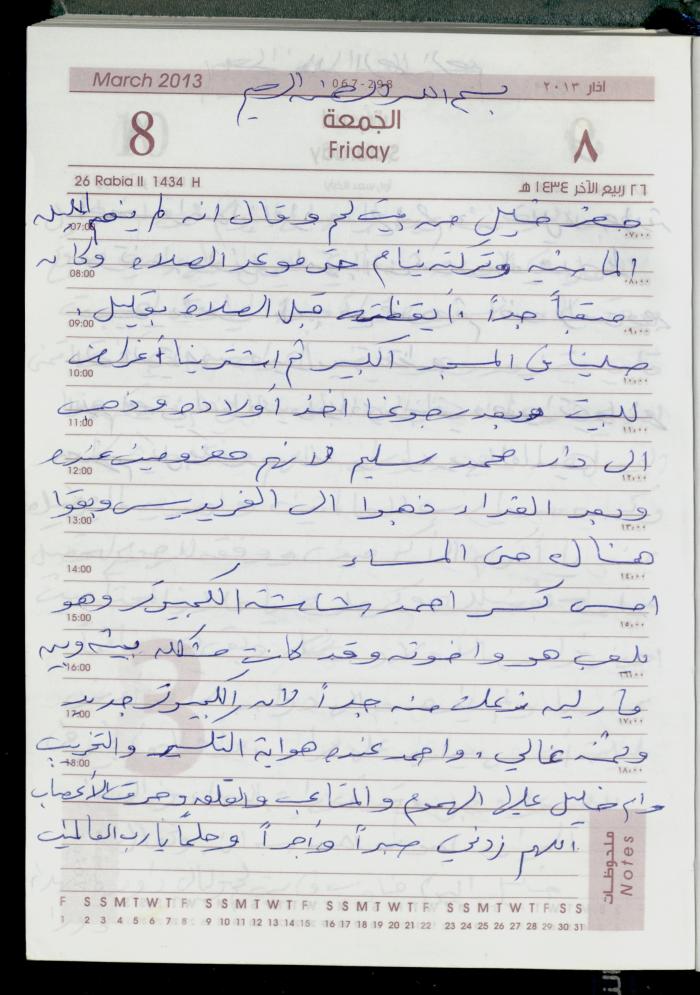 March 2013
067-298
آذار ٢٠١٣
بسم الله الرحمن الرحيم
8
الجمعة
Friday
٨
26 Rabia II 1434 H
٢٦ ربيع الآخر ١٤٣٤ هـ
حضر خليل من بيت لحم وقال انه لم ينم الليله
07:00
٠٧,٠٠
الماضيه وتركته ينام حتى موعد الصلاه وكان
08:00
٠٨,٠٠
متعباً جداً أيقظته قبل الصلاة بقليل .
09:00
٠٩,٠٠
صلينا في المسجد الكبير ثم اشترينا أغراض
10:00
١٠,٠٠
للبيت وبعد رجوعنا اخذ أولاده وذهب
11:00
١١,٠٠
الى دار محمد سليم لانهم معزومين عنده
12:00
١٢,٠٠
وبعد الغداء ذهبوا الى الفريديس وبقوا
13:00
١٣,٠٠
هناك حتى المساء
14:00
١٤,٠٠
امس كسر احمد شاشة الكمبيوتر وهو
15:00
١٥,٠٠
يلعب هو واخوته وقد كانت مشكله بينه وبين
16:00
١٦,٠٠
ماريه زعلت منه جداً لان الكمبيوتر جديد
17:00
١٧,٠٠
وثمنه غالي . واحمد عنده هواية التكسير والتخريب
18:00
١٨,٠٠
وام خليل عليها الهموم والمتاعب والقلق وحرق الأعصاب
اللهم زدني صبراً وأجراً وحلماً يا رب العالمين
ملحوظات
Notes
F S S M T W T F S S M T W T F S S M T W T F S S M T W T F S S
1 2 3 4 5 6 7 8 9 10 11 12 13 14 15 16 17 18 19 20 21 22 23 24 25 26 27 28 29 30 31